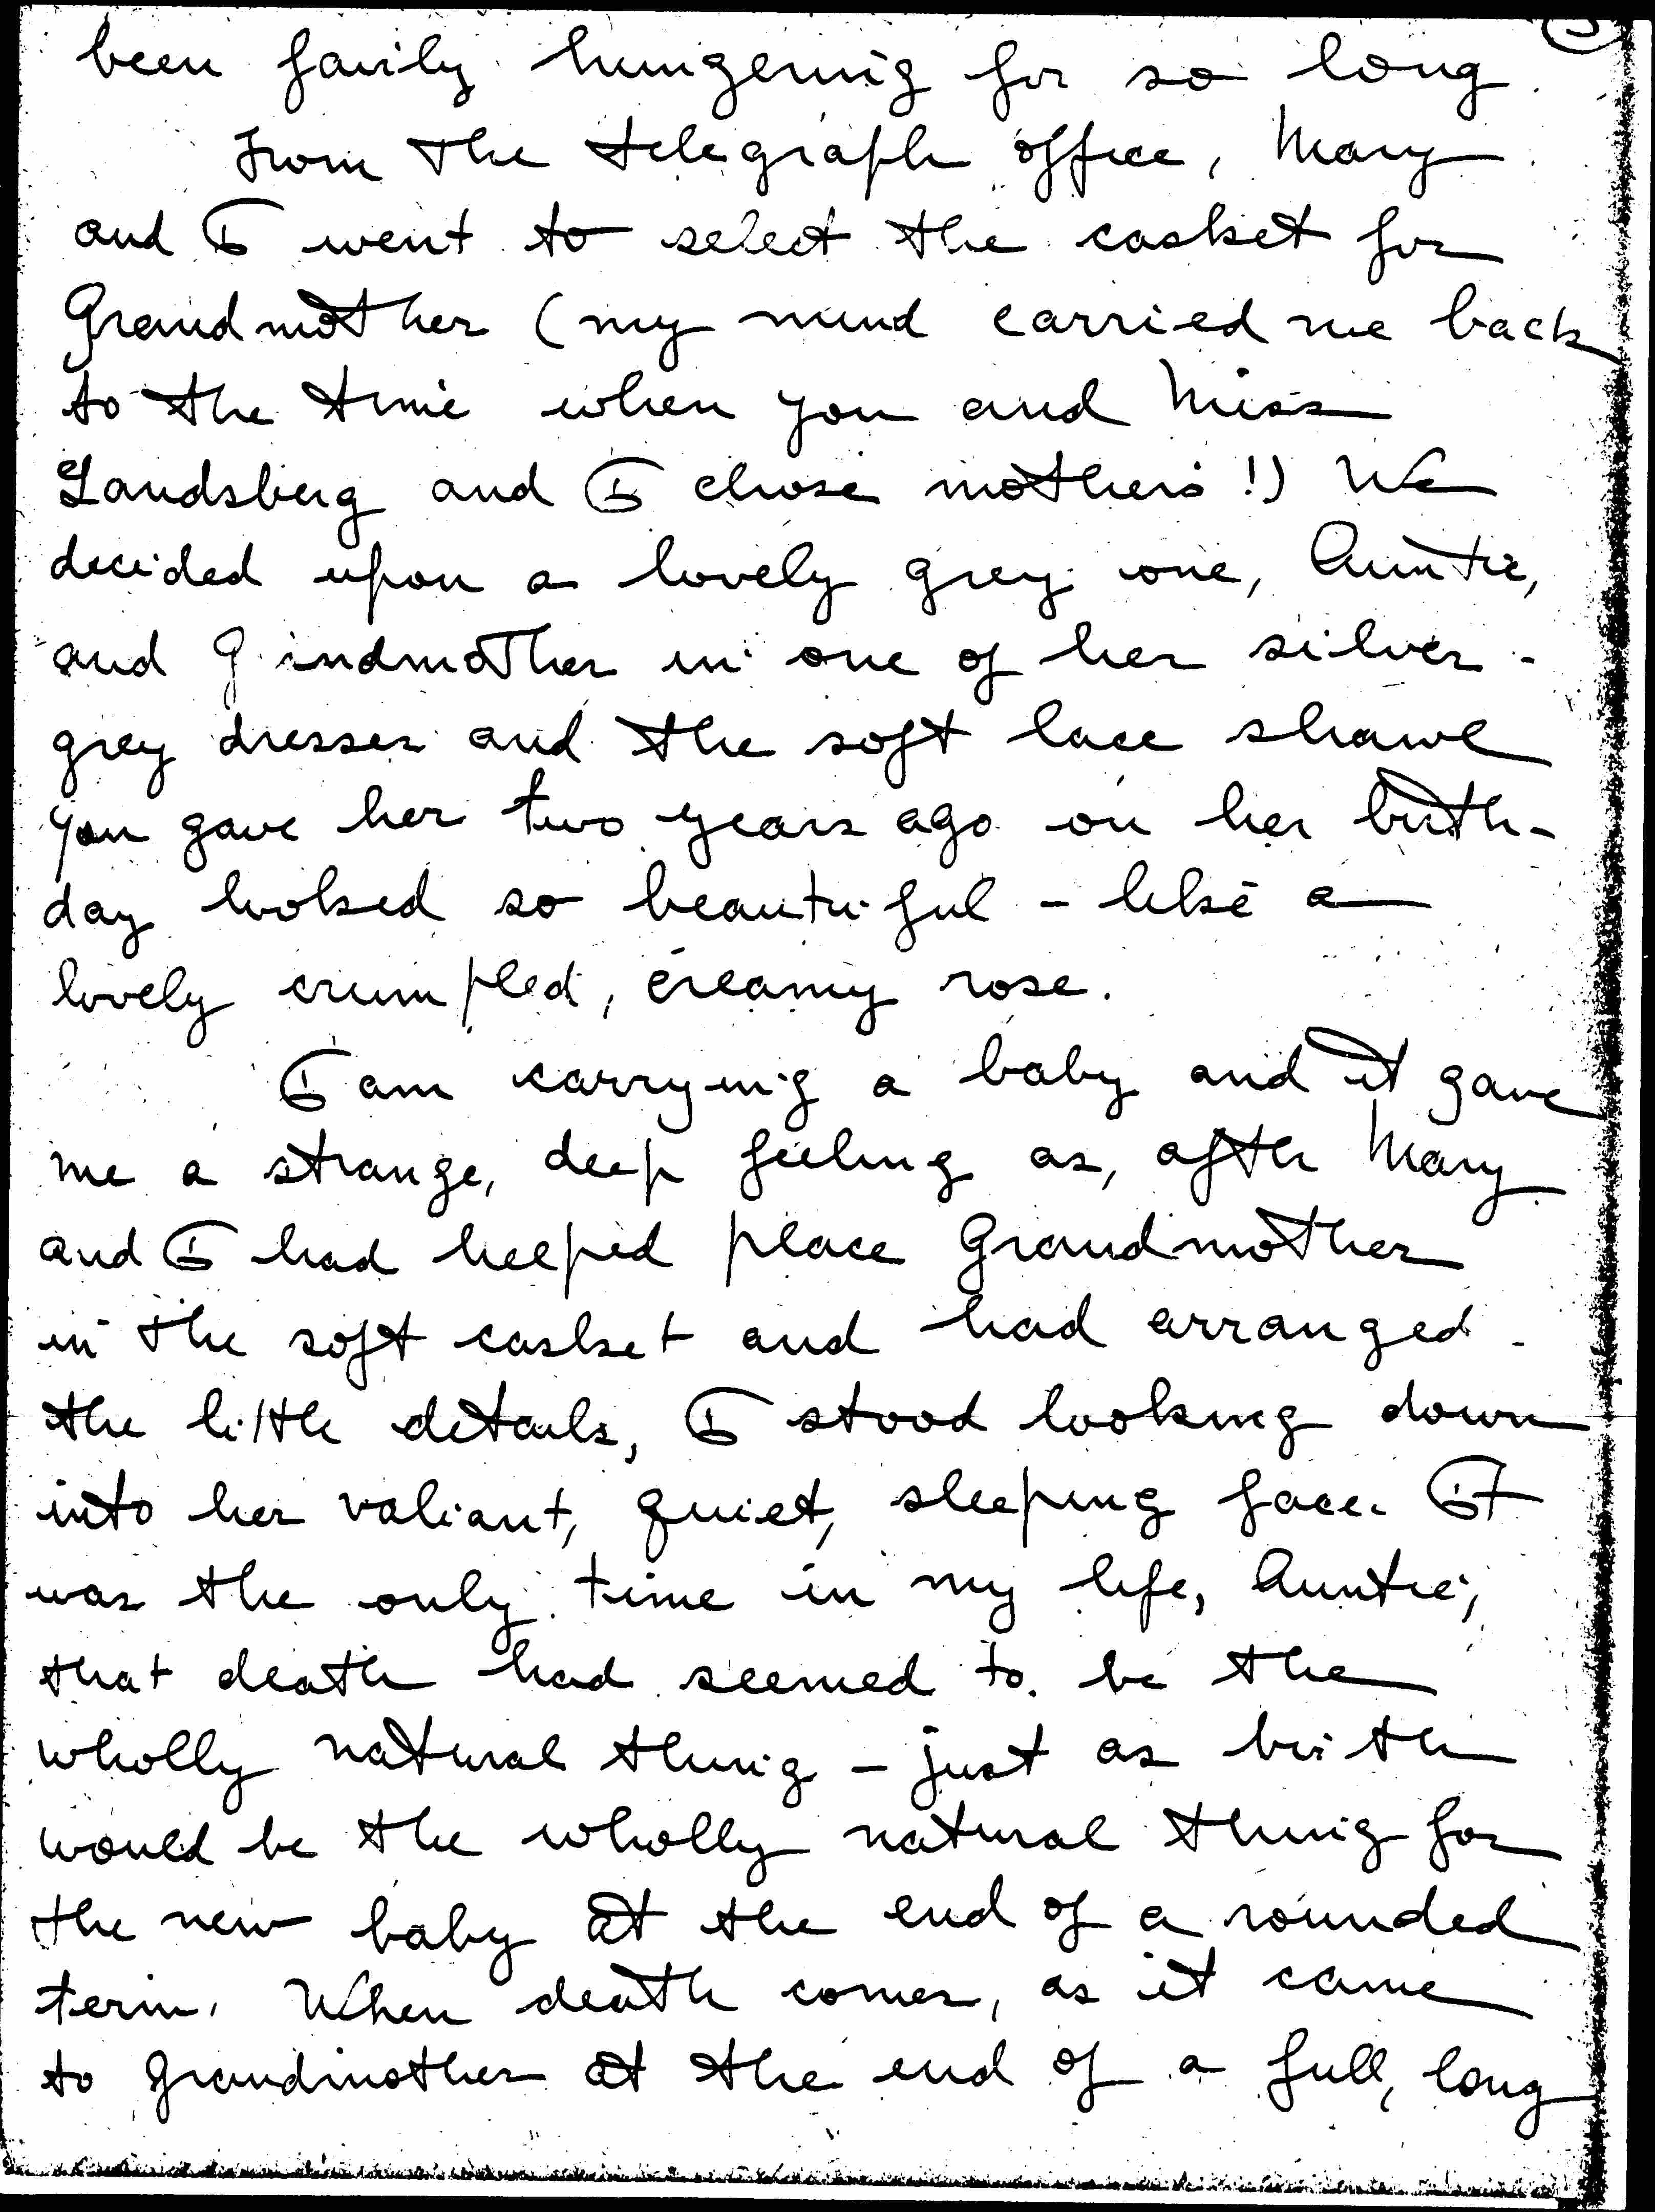 been fairly hungering for so long.
From the telegraph office, Mary
and I went to select the casket for
Grandmother (my mind carried me back
to the time when you and Miss
Landsberg and I chose mother's!) We
decided upon a lovely grey one, Auntie,
and Grandmother in one of her silver-
grey dresses and the soft lace shawl
you gave her two years ago on her birth-
day looked so beautiful - like a
lovely crumpled, creamy rose.
I am carrying a baby and it gave
me a strange, deep feeling as, after Mary
and I had helped place Grandmother
in the soft casket and had arranged
the little details, I stood looking down
into her valiant, quiet, sleeping face. It
was the only time in my life, Auntie,
that death had seemed to be the
wholly natural thing - just as birth
would be the wholly natural thing for
the new baby at the end of a rounded
term. When death comes, as it came
to Grandmother at the end of a full, long